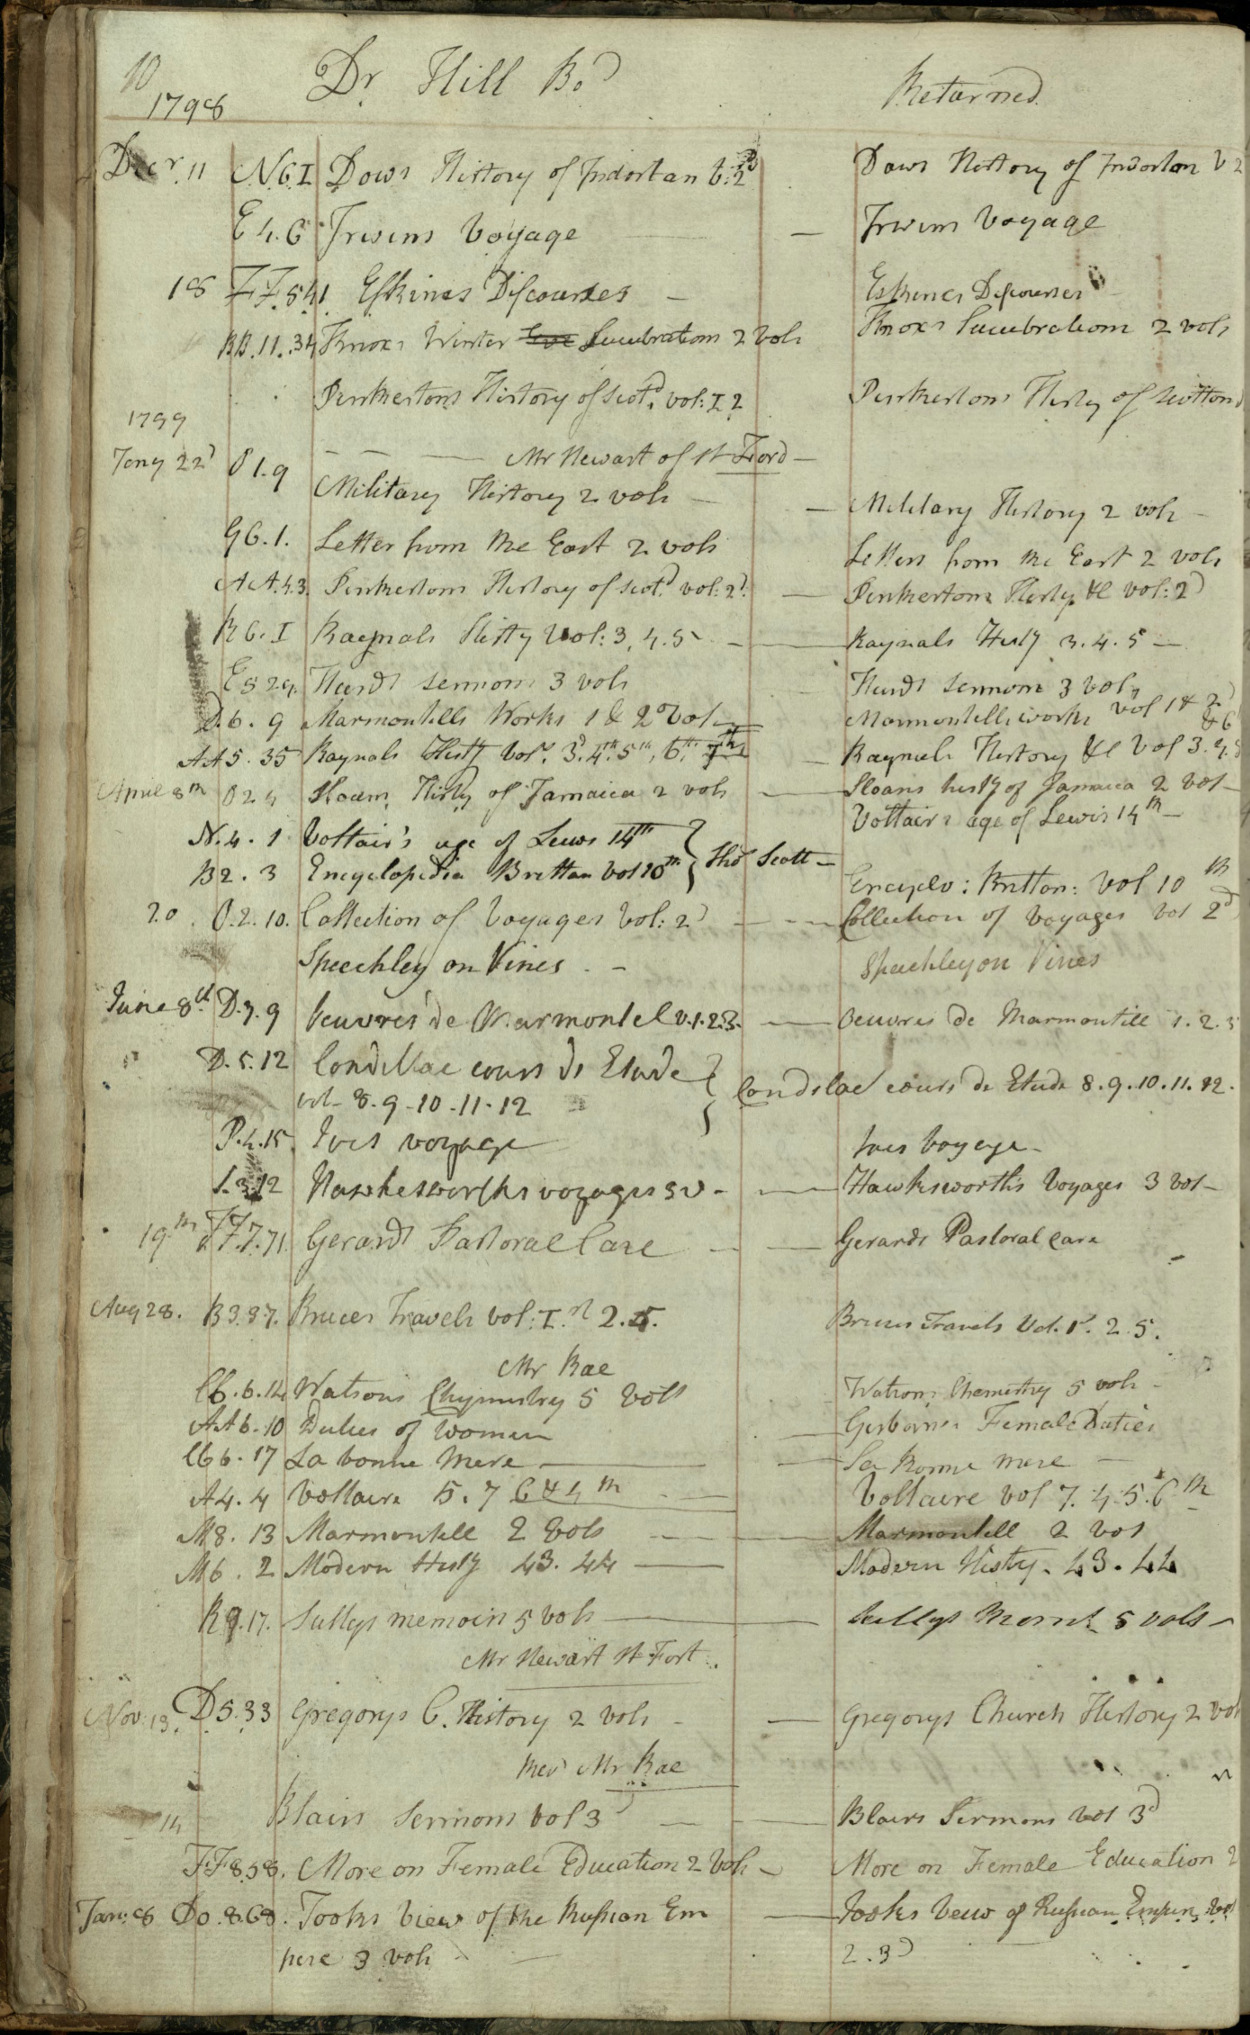 10
1798
Dr Hill Bo^d
Returned
Decr. 11 N.6.I Dows History of Indostan V:2^d
Dows History of Indostan V 2
E 4.6 Irwins Voyage —
Irwins Voyage
18 FF.5.41 Eskines Discourses —
Eskines Discourses
BB.11.34 Knoxs Winter Eve Lucubrations 2 Vols
Knoxs Lucubrations 2 vols
Pinkertons History of Scot^d. vol: I 2
Pinkertons History of Scotland
1799
Jany 22^d P 1.9 — — — Mr Newart of St Ford —
Military History 2 vols —
— Military History 2 vols —
G6.1. Letter from the East 2 vols
Letters from the East 2 vols
AA.4.3. Pinkertons History of Scot^d vol: 2^d
— Pinkertons Histy. &c vol: 2^d
R6.I Raynals Histy Vol: 3, 4.5 —
— Raynals Histy 3.4.5 —
E5 29. Hurds Sermons 3 vols
Hurds Sermons 3 Vols
D.6.9 Marmontells Works 1 & 2^d Vol
Marmontells works vol 1 & 2^d & 6
AA5.35 Raynals Histy Vol^s. 3^d. 4^th. 5^th, 6^th. 7^th
— Raynals History &c Vol 3. 4. 5
April 8^th O 2 4 Sloans Histy of Jamaica 2 vols
— Sloans histy of Jamaica 2 vol —
N.4.1 Voltair's age of Lewis 14^th
Voltairs age of Lewis 14^th —
B2.3 Encyclopedia Brittan Vol 10^th } Tho^s Scott —
Encyclo: Brittan: Vol 10^th
20 O.2.10. Collection of Voyages Vol: 2^d
— Collection of Voyages Vol 2^d
Speechley on Vines. —
Speechley on Vines
June 8^th. D.7.9 Oeuvres de Marmontel v.1.2.3.
— Oeuvres de Marmontill 1.2.3
D.5.12 Condillac cours de Etude
vol- 8-9-10-11-12
} Condilac cours de Etude 8.9.10.11.12.
P.4.15 Ives voyage
Ives Voyage —
I.3.12 Hawkesworths voyages 3 v —
— Hawksworth's Voyages 3 vol —
19^th FF.7.71 Gerards Pastoral Care —
— Gerards Pastoral Care
Aug 28. B3.37. Bruces Travels Vol: I.^st 2.5.
Bruces Travels Vol. 1^st. 2.5.
Mr Rae
C6.6.14 Watsons Chymistry 5 Voll
Watsons Chemistry 5 vols —
AA6.10 Duties of Women
— Gisbornes Female Duties
C66.17 La bonne Mere —
— La Bonne mere —
A4.4 Voltaire 5.7 6 & 4^th
Voltaire vol 7.4.5.6^th
M8.13 Marmontell 2 Vols —
— Marmontell 2 Vol
M6.2 Modern Histy 43.44 —
Modern Histy. 43.44
R9.17. Sullys memoirs 5 vols —
Sullys Mems 5 vols —
Mr Newart St Fort
Nov: 13. D5.33 Gregorys C. History 2 vols —
— Gregorys Church History 2 vol
Rev^d Mr Rae
14 Blairs Sermons Vol 3^d —
— Blairs Sermons Vol 3^d
FF8.58. More on Female Education 2 Vols —
More on Female Education 2
Jan: 8 Do.8.68. Tooks View of the Russian Em
— Tooks View of Russian Empire, Vol
pire 3 vols —
2.3^d